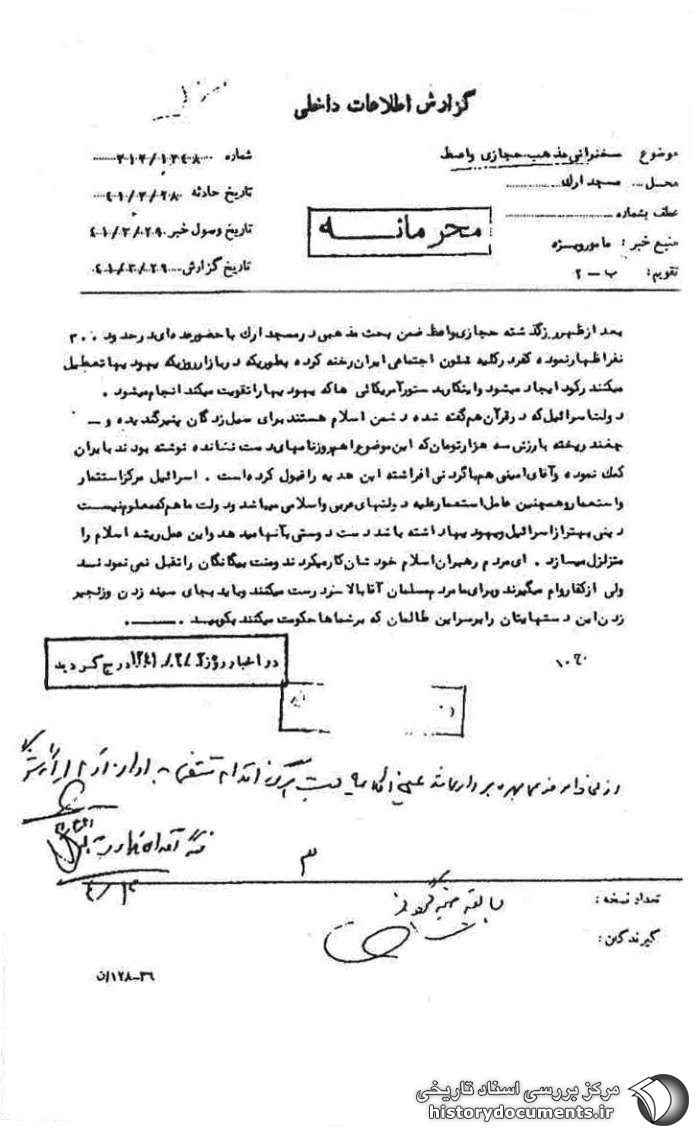 گزارش اطلاعات داخلی
موضوع سخنرانی مذهب حجازی واعظ
شماره ۳۰۲/۱۳۴۰۸
محل مسجد ارك
تاریخ حادثه ۴۱/۳/۲۸
عطف بشماره
محرمانه
تاریخ وصول خبر ۴۱/۳/۲۹
منبع خبر: مامور ویژه
تقویم: ب – ۲
تاریخ گزارش ۴۱/۳/۲۹
بعد از ظهر روز گذشته حجازی واعظ ضمن بحث مذهبی در مسجد ارك با حضور عده‌ای در حدود ۳۰۰
نفر اظهار نموده کفر در کلیه شئون اجتماعی ایران رخنه کرده بطوریکه در بازار روزیکه یهودیها تعطیل
میکنند رکود ایجاد میشود و اینکار بدستور آمریکائی ها که یهودیها را تقویت میکند انجام میشود .
دولت اسرائیل که در قرآن هم گفته شده دشمن اسلام هستند برای سیل زدگان پنیر گندیده و –
چغندر پخته بارزش سه هزار تومان که این موضوع را هم روزنامه‌ها بدست نشانده نوشته بودند بایران
کمك نموده و آقای امینی هم با گردنی افراشته این هدیه را قبول کرده است . اسرائیل مرکز استثمار
و استعمار و همچنین عامل استعمار علیه دولتهای عربی و اسلامی میباشد و دولت ما هم که معلوم نیست
دینی بهتر از اسرائیل و یهودیها داشته باشد دست دوستی بآنها میدهد و این عمل ریشه اسلام را
متزلزل میسازد . ای مردم رهبران اسلام خودشان کار میکردند و منت بیگانگان را تقبل نمی نمودند
ولی از کفار وام میگیرند و برای ما مردم مسلمان آقا بالا سر درست میکنند و باید بجای سینه زدن و زنجیر
زدن این دستهایتان را بر سر این ظالمان که بر شماها حکومت میکنند بکوبید .
در اخبار روز ۱۳۴۱/۳/۳۰ درج گردید
۳
تعداد نسخه :
گیرندگان :
۳۶-۱۲۸/ن
مرکز بررسی اسناد تاریخی
historydocuments.ir